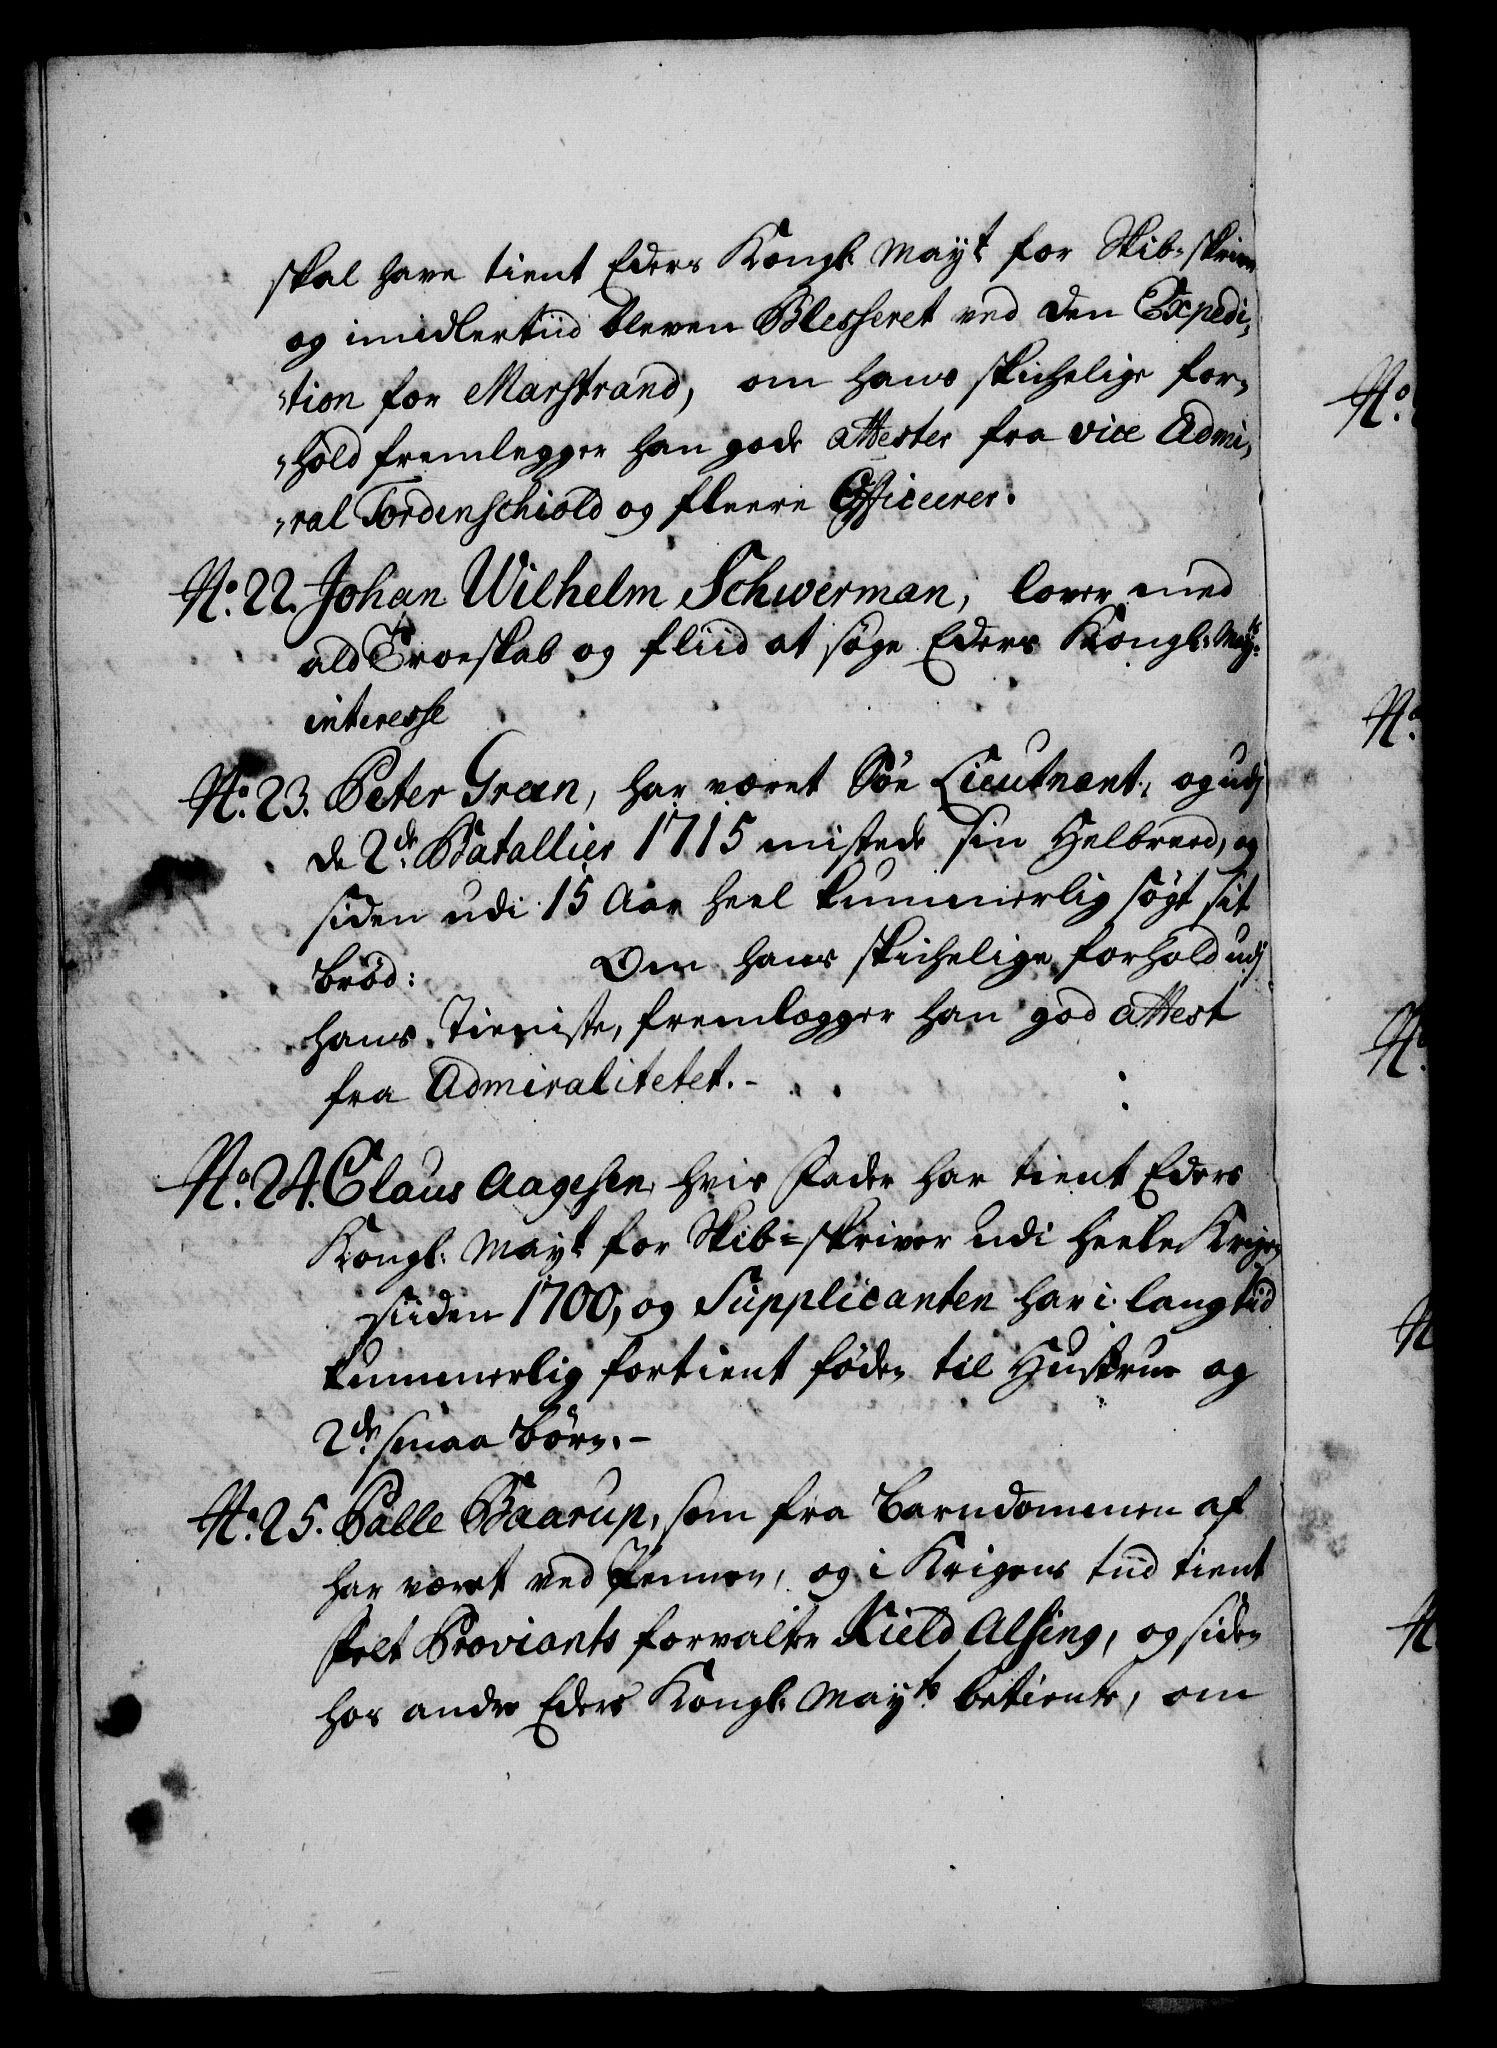 skal have tient Eders Kongl: Mayt for Skib-skriver
og imidlertiid bleven Blesseret ved den Expedi-
-tion for Marstrand, om hans skichelige for-
-hold fremlegger han gode attester fra vice Admi-
-ral Tordenschiold og fleere Officeerer.
No. 22. Johan Wilhelm Schwerman, lover med
ald Troeskab og fliid at søge Eders Kongl: Mayts
interesse
No. 23. Peter Green, har været Søe Lieutnant, og udj
de 2de Batallier 1715 mistede sin Helbreed, og
siden udi 15 Aar heel kummerlig søgt sit
brød: Om hans skichelige forhold udj
hans Tieniste, fremlægger han god attest
fra Admiralitetet.-
No. 24. Claus Aagesen, hvis Fader har tient Eders
Kongl: Mayt for Skib-skriver udi heele Krigen
siiden 1700, og Supplicanten har i lang tiid
kummerlig fortient føden til Hustrue og
2de smaa børn.-
No. 25. Palle Baarup, som fra barndommen af
har været ved Pennen, og i Krigens tiid tient
felt Proviants forvalter Kield Alsing, og siden
hos andre Eders Kongl: Mayts betiente, om
No.
No.
No.
N
N